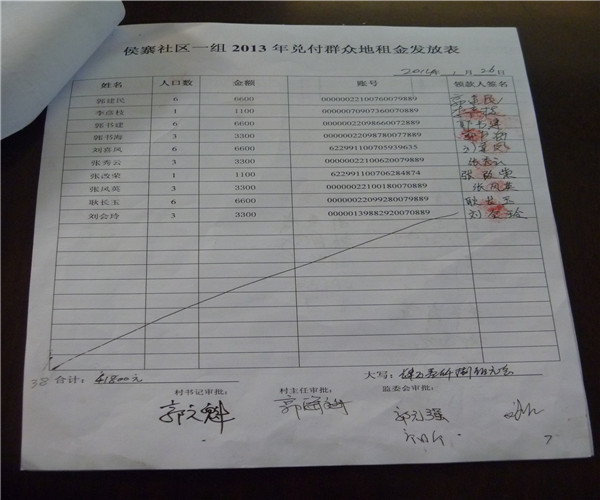 侯寨社区一组 2013 年兑付群众地租金发放表
2014年 1 月 26日
姓名 人口数 金额 账号 领款人签名
郭建民 6 6600 00000022100760079889 郭建民
李彦枝 1 1100 00000070907360070889
郭书建 6 6600 00000022098660072889 郭书建
郭书海 3 3300 00000022098780077889
刘喜凤 6 6600 622991105705939635
张秀云 3 3300 00000022100620079889 张秀云
张改荣 1 1100 62299110706284874 张改荣
张风英 3 3300 00000022100180070889 张风英
耿长玉 6 6600 00000022099280079889 耿长玉
刘会玲 3 3300 00000139882920070889 刘会玲
38 合计: 41800元 大写:
村书记审批: 村主任审批: 监委会审批:
郭文魁
7